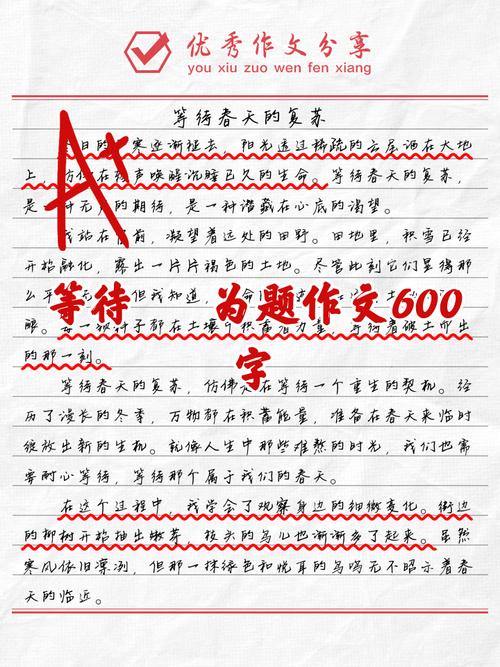 优秀作文分享
you xiu zuo wen fen xiang
等待春天的复苏
A+
日的 寒逐渐褪去,阳光透过稀疏的云层洒在大地
上, 仿佛在轻声唤醒沉睡已久的生命。等待春天的复苏,
是一种无 的期待,是一种潜藏在心底的渴望。
我站在窗前,凝望着远处的田野。田地里,积雪已经
开始融化,露出一片片褐色的土地。尽管此刻它们显得那
么平 无 但我知道, 命
等待 为题作文600
字
醒。每一粒种子都在土壤中积蓄着力量,等待着破土而出
的那一刻。
等待春天的复苏,仿佛 在等待一个重生的契机。经
历了漫长的冬季,万物都在积蓄能量,准备在春天来临时
绽放出新的生机。就像人生中那些难熬的时光,我们也需
要耐心等待,等待那个属于我们的春天。
在这个过程中,我学会了观察身边的细微变化。街边
的柳树开始抽出嫩芽,枝头的鸟儿也渐渐多了起来。虽然
寒风依旧凛冽,但那一抹绿色和悦耳的鸟鸣无不昭示着春
天的临近。